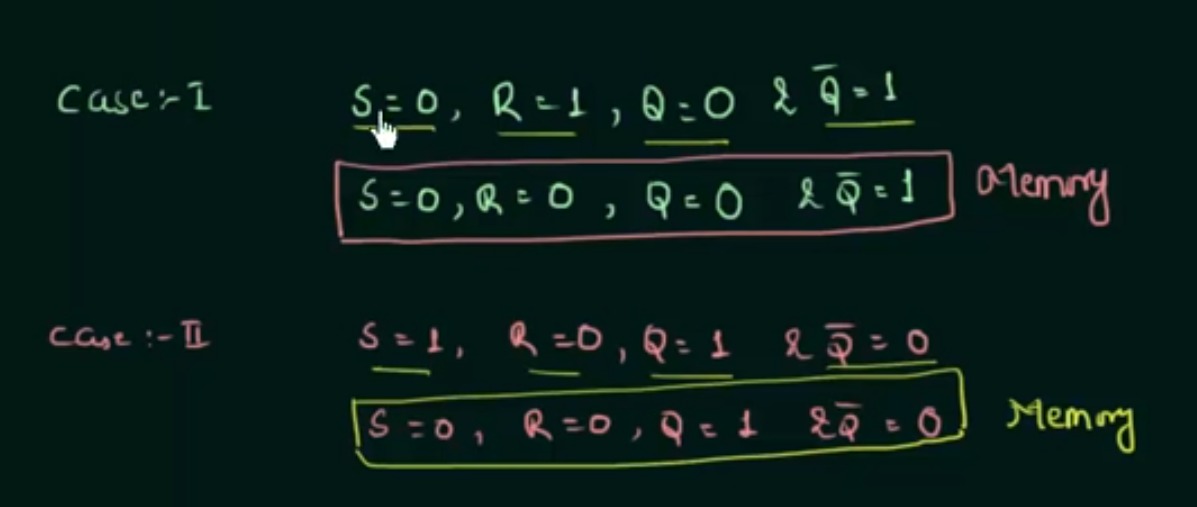 Case:- I S=0, R=1, Q=0 & Q̅=1
S=0, R=0, Q=0 & Q̅=1 Memory
Case:- II S=1, R=0, Q=1 & Q̅=0
S=0, R=0, Q=1 & Q̅=0 Memory